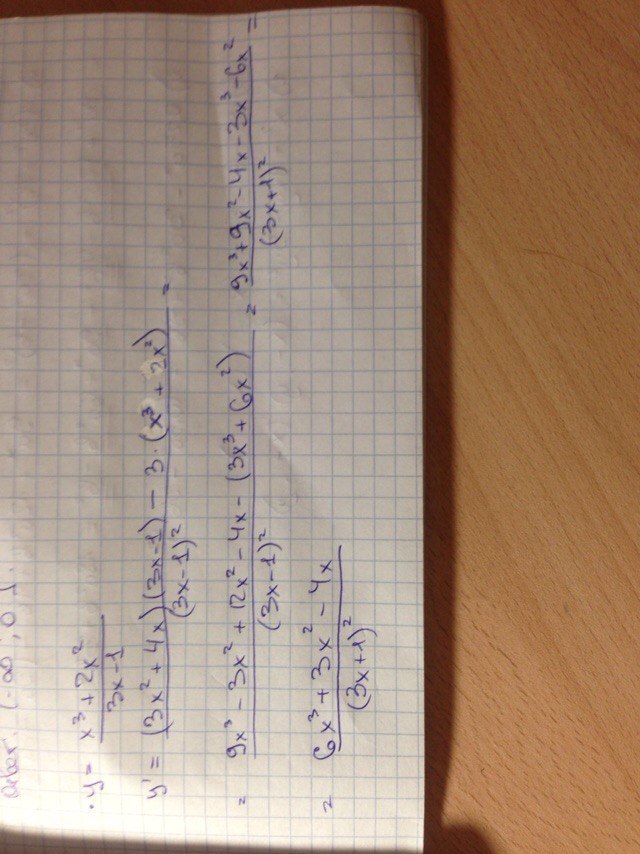 Ответ: (-∞; 0].
· y = (x³ + 2x²)/(3x - 1)
y' = ((3x² + 4x)(3x - 1) - 3 · (x³ + 2x²))/(3x - 1)² =
= (9x³ - 3x² + 12x² - 4x - (3x³ + 6x²))/(3x - 1)² = (9x³ + 9x² - 4x - 3x³ - 6x²)/(3x + 1)² =
= (6x³ + 3x² - 4x)/(3x + 1)²